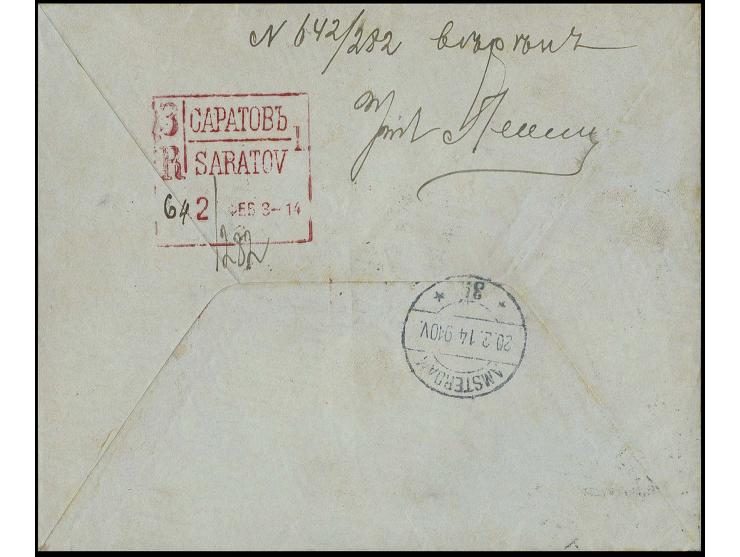 N 642/282
З САРАТОВЪ 1
R SARATOV
642 ФЕВ 3-14
282
AMSTERDAM
20.2.14 9-10V.